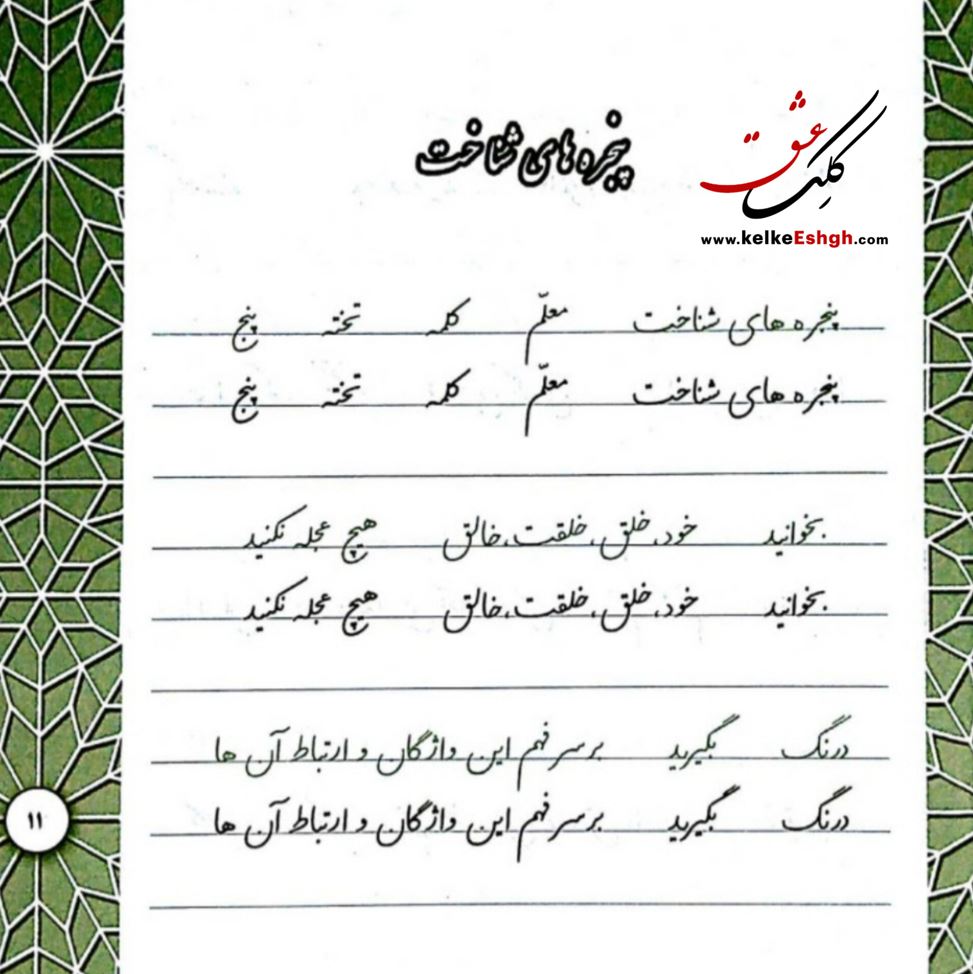 کلک عشق
www.kelkeEshgh.com
پنجره های شناخت
پنجره های شناخت معلّم کلمه تخته پنج
پنجره های شناخت معلّم کلمه تخته پنج
بخوانید خود، خلق، خلقت، خالق هیچ عجله نکنید
بخوانید خود، خلق، خلقت، خالق هیچ عجله نکنید
درنگ بگیرید بر سر فهم این واژگان و ارتباط آن ها
درنگ بگیرید بر سر فهم این واژگان و ارتباط آن ها
۱۱